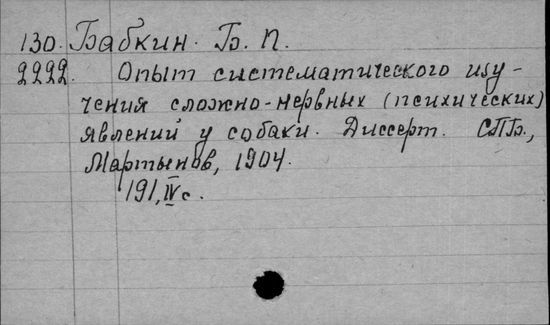 130. Бабкин. Б. П.
2222. Опыт систематического изу-
чения сложно-нервных (психических)
явлений у собаки. Диссерт. СПБ.,
Мартынов, 1904.
191, IV с.